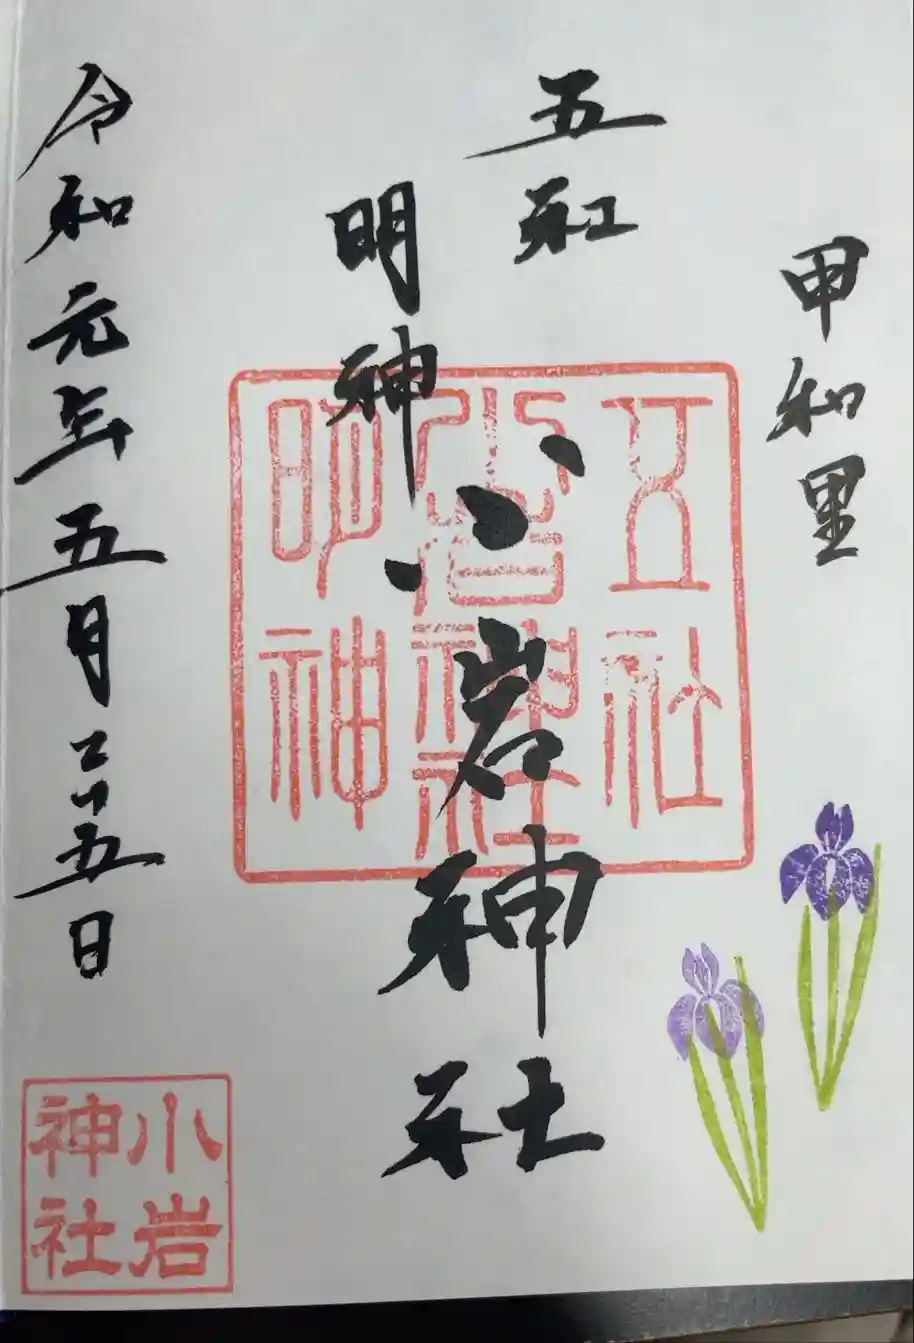 甲和里
五社
明神
小岩神社
令和元年五月二十五日
五社
小岩神社
明神
小岩
神社